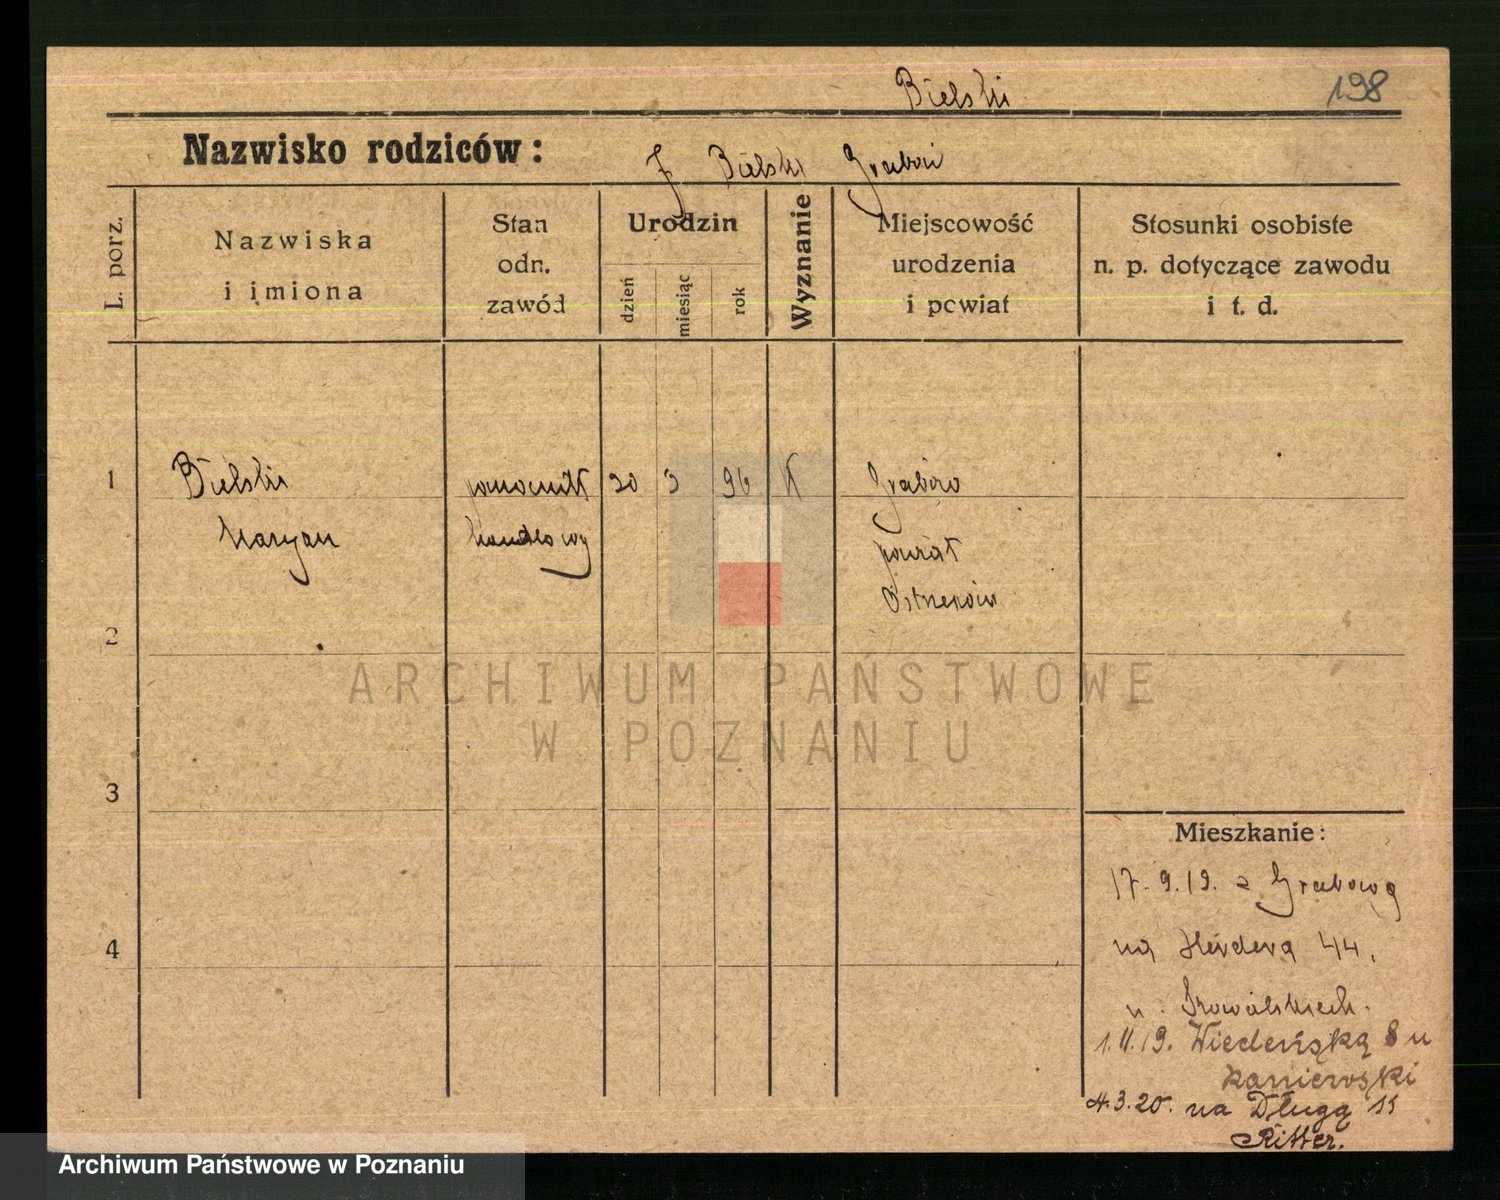 Bielski
198
Nazwisko rodziców:
J Bielski Grabów
L. porz.
Nazwiska
i imiona
Stan
odn.
zawód
Urodzin
dzień
miesiąc
rok
Wyznanie
Miejscowość
urodzenia
i powiat
Stosunki osobiste
n. p. dotyczące zawodu
i t. d.
1
Bielski
Maryan
pomocnik
handlowy
30 3 96 k
Grabów
powiat
2
3
4
Mieszkanie:
17.9.19. z Grabowa
na Herdera 44.
u
1.11.19. Wiedeńską 8 u
Kanierwski
4.3.20. na Długą 11
Ritter.
ARCHIWUM PAŃSTWOWE
W POZNANIU
Archiwum Państwowe w Poznaniu